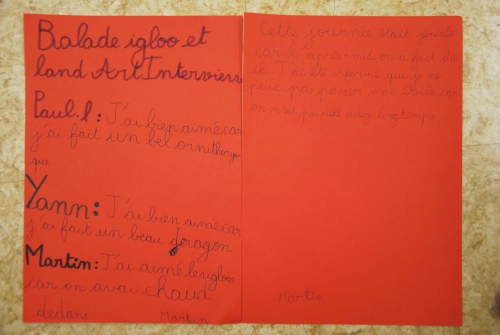 Balade igloo et
land Art Interview
Paul.l: J'ai bien aimé car
j'ai fait un bel ornithoryn-
que
Yann: J'ai bien aimé car
j'ai fait un beau dragon
Martin: J'ai aimé les igloos
car on avai chaud
dedans
Martin
Cette journée était géniale
car l'après-midi on a fait du
ski. J'ai été informé que je ne
peux pas passer mon étoile car
on n'est pas resté assez longtemps
Martin